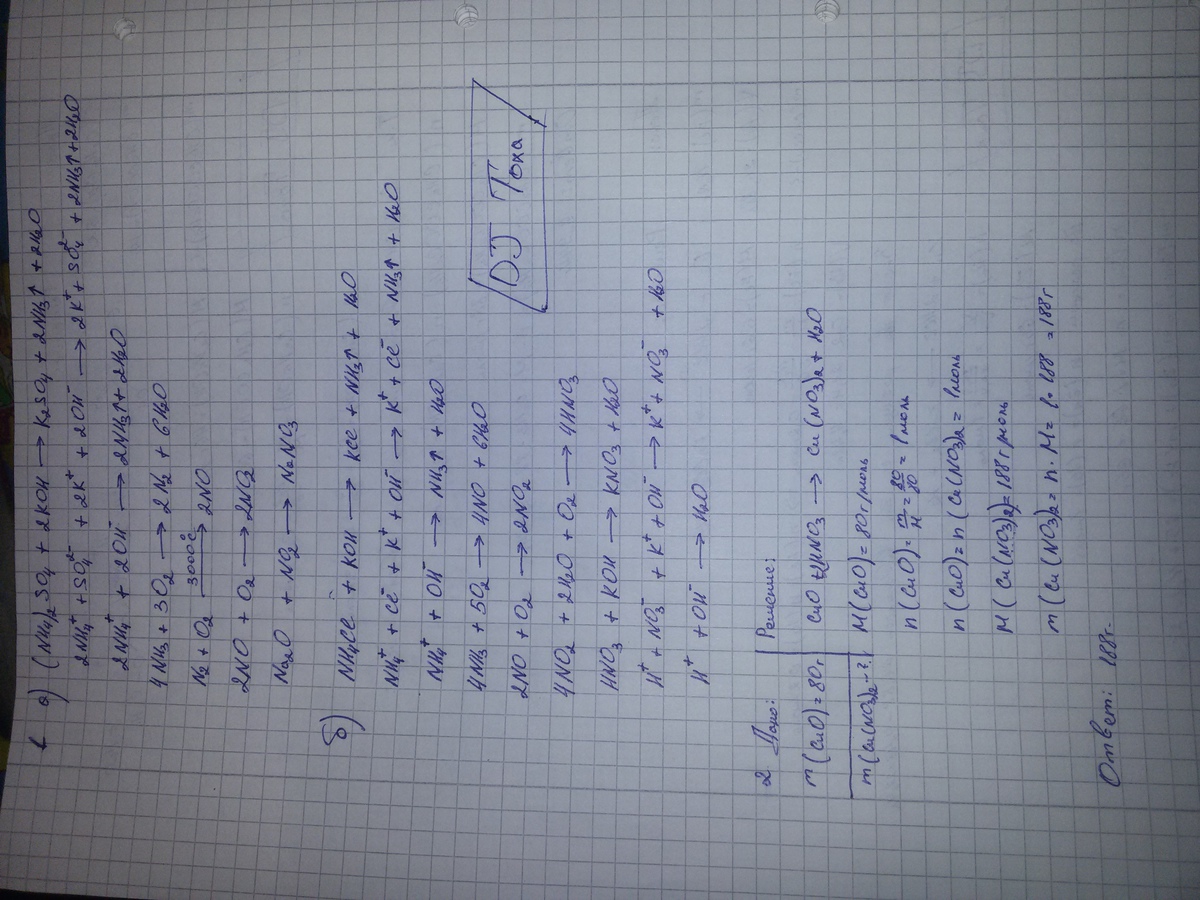 1 а) (NH₄)₂SO₄ + 2KOH → K₂SO₄ + 2NH₃↑ + 2H₂O
2NH₄⁺ + SO₄²⁻ + 2K⁺ + 2OH⁻ → 2K⁺ + SO₄²⁻ + 2NH₃↑ + 2H₂O
2NH₄⁺ + 2OH⁻ → 2NH₃↑ + 2H₂O
4NH₃ + 3O₂ → 2N₂ + 6H₂O
N₂ + O₂ 3000°C → 2NO
2NO + O₂ → 2NO₂
Na₂O + NO₂ → NaNO₃
б) NH₄Cl + KOH → KCl + NH₃↑ + H₂O
NH₄⁺ + Cl⁻ + K⁺ + OH⁻ → K⁺ + Cl⁻ + NH₃↑ + H₂O
NH₄⁺ + OH⁻ → NH₃↑ + H₂O
4NH₃ + 5O₂ → 4NO + 6H₂O
2NO + O₂ → 2NO₂
4NO₂ + 2H₂O + O₂ → 4HNO₃
HNO₃ + KOH → KNO₃ + H₂O
H⁺ + NO₃⁻ + K⁺ + OH⁻ → K⁺ + NO₃⁻ + H₂O
H⁺ + OH⁻ → H₂O
DJ Тоха
2 Дано:
m(CuO) = 80г
m(Cu(NO₃)₂ - ?
Решение:
CuO + 2HNO₃ → Cu(NO₃)₂ + H₂O
M(CuO) = 80г/моль
n(CuO) = m/M = 80/80 = 1моль
n(CuO) = n(Cu(NO₃)₂ = 1моль
M(Cu(NO₃)₂) = 188г/моль
m(Cu(NO₃)₂ = n · M = 1 · 188 = 188г
Ответ: 188г.